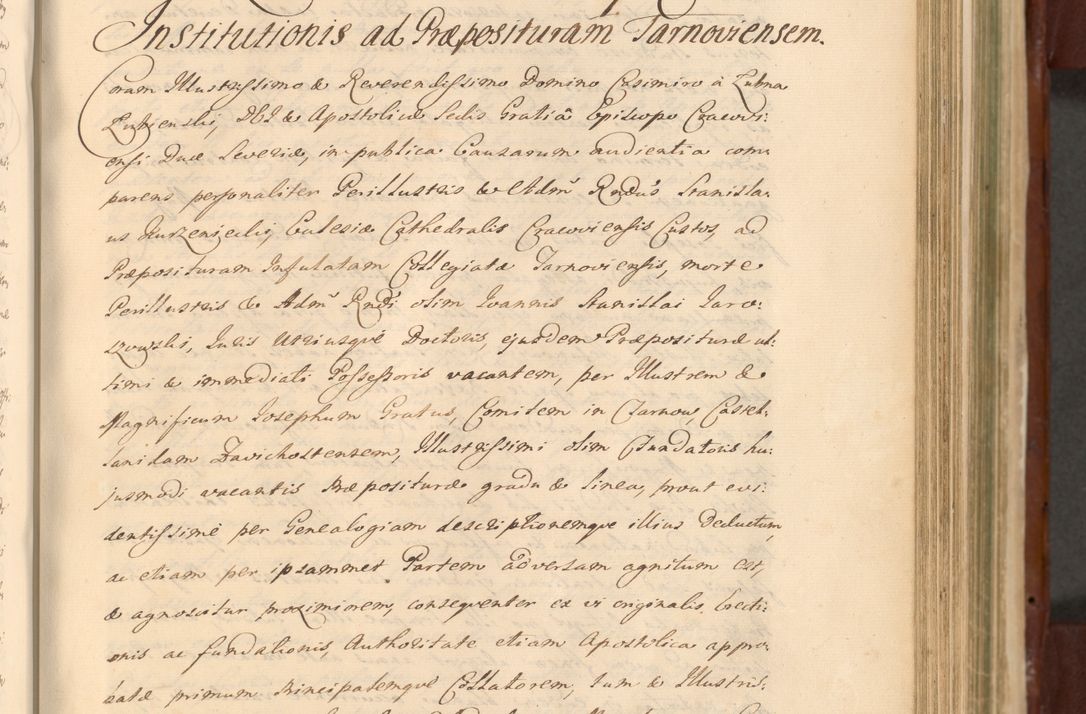 Institutionis ad Præposituram Tarnoviensem.
Coram Illustrissimo & Reverendissimo Domino Casimiro à Lubna
Łubienski, DEI & Apostolicæ Sedis Gratiâ Episcopo Cracovi:
ensi Duce Severiæ, in publica Causarum audientia com:
parens personaliter Perillustris & Adm. Rndus Stanisla:
us Kurzeniecki, Ecclesiæ Cathedralis Cracoviensis Custos, ad
Præposituram Infulatam Collegiatæ Tarnoviensis, morte
Perillustris & Adm. Rndi olim Ioannis Stanislai Iaro:
szowski, Iuris Utriusque Doctoris, ejusdem Præposituræ ul:
timi & immediati Possessoris vacantem, per Illustrem &
Magnificum Iosephum Gratus, Comitem in Tarnow, Castel:
lanidam Zavichostensem, Illustrissimi olim Fundatoris hu:
jusmodi vacantis Præposituræ gradu & linea, prout evi:
dentissime per Genealogiam descriptionemque illius deductum,
ac etiam per ipsammet Partem adversam agnitum est,
& agnoscitur proximiorem, consequenter ex vi originalis Erecti:
onis ac fundationis, Authoritate etiam Apostolica appro:
batæ primum Principalemque Collatorem, tum & Illustris: